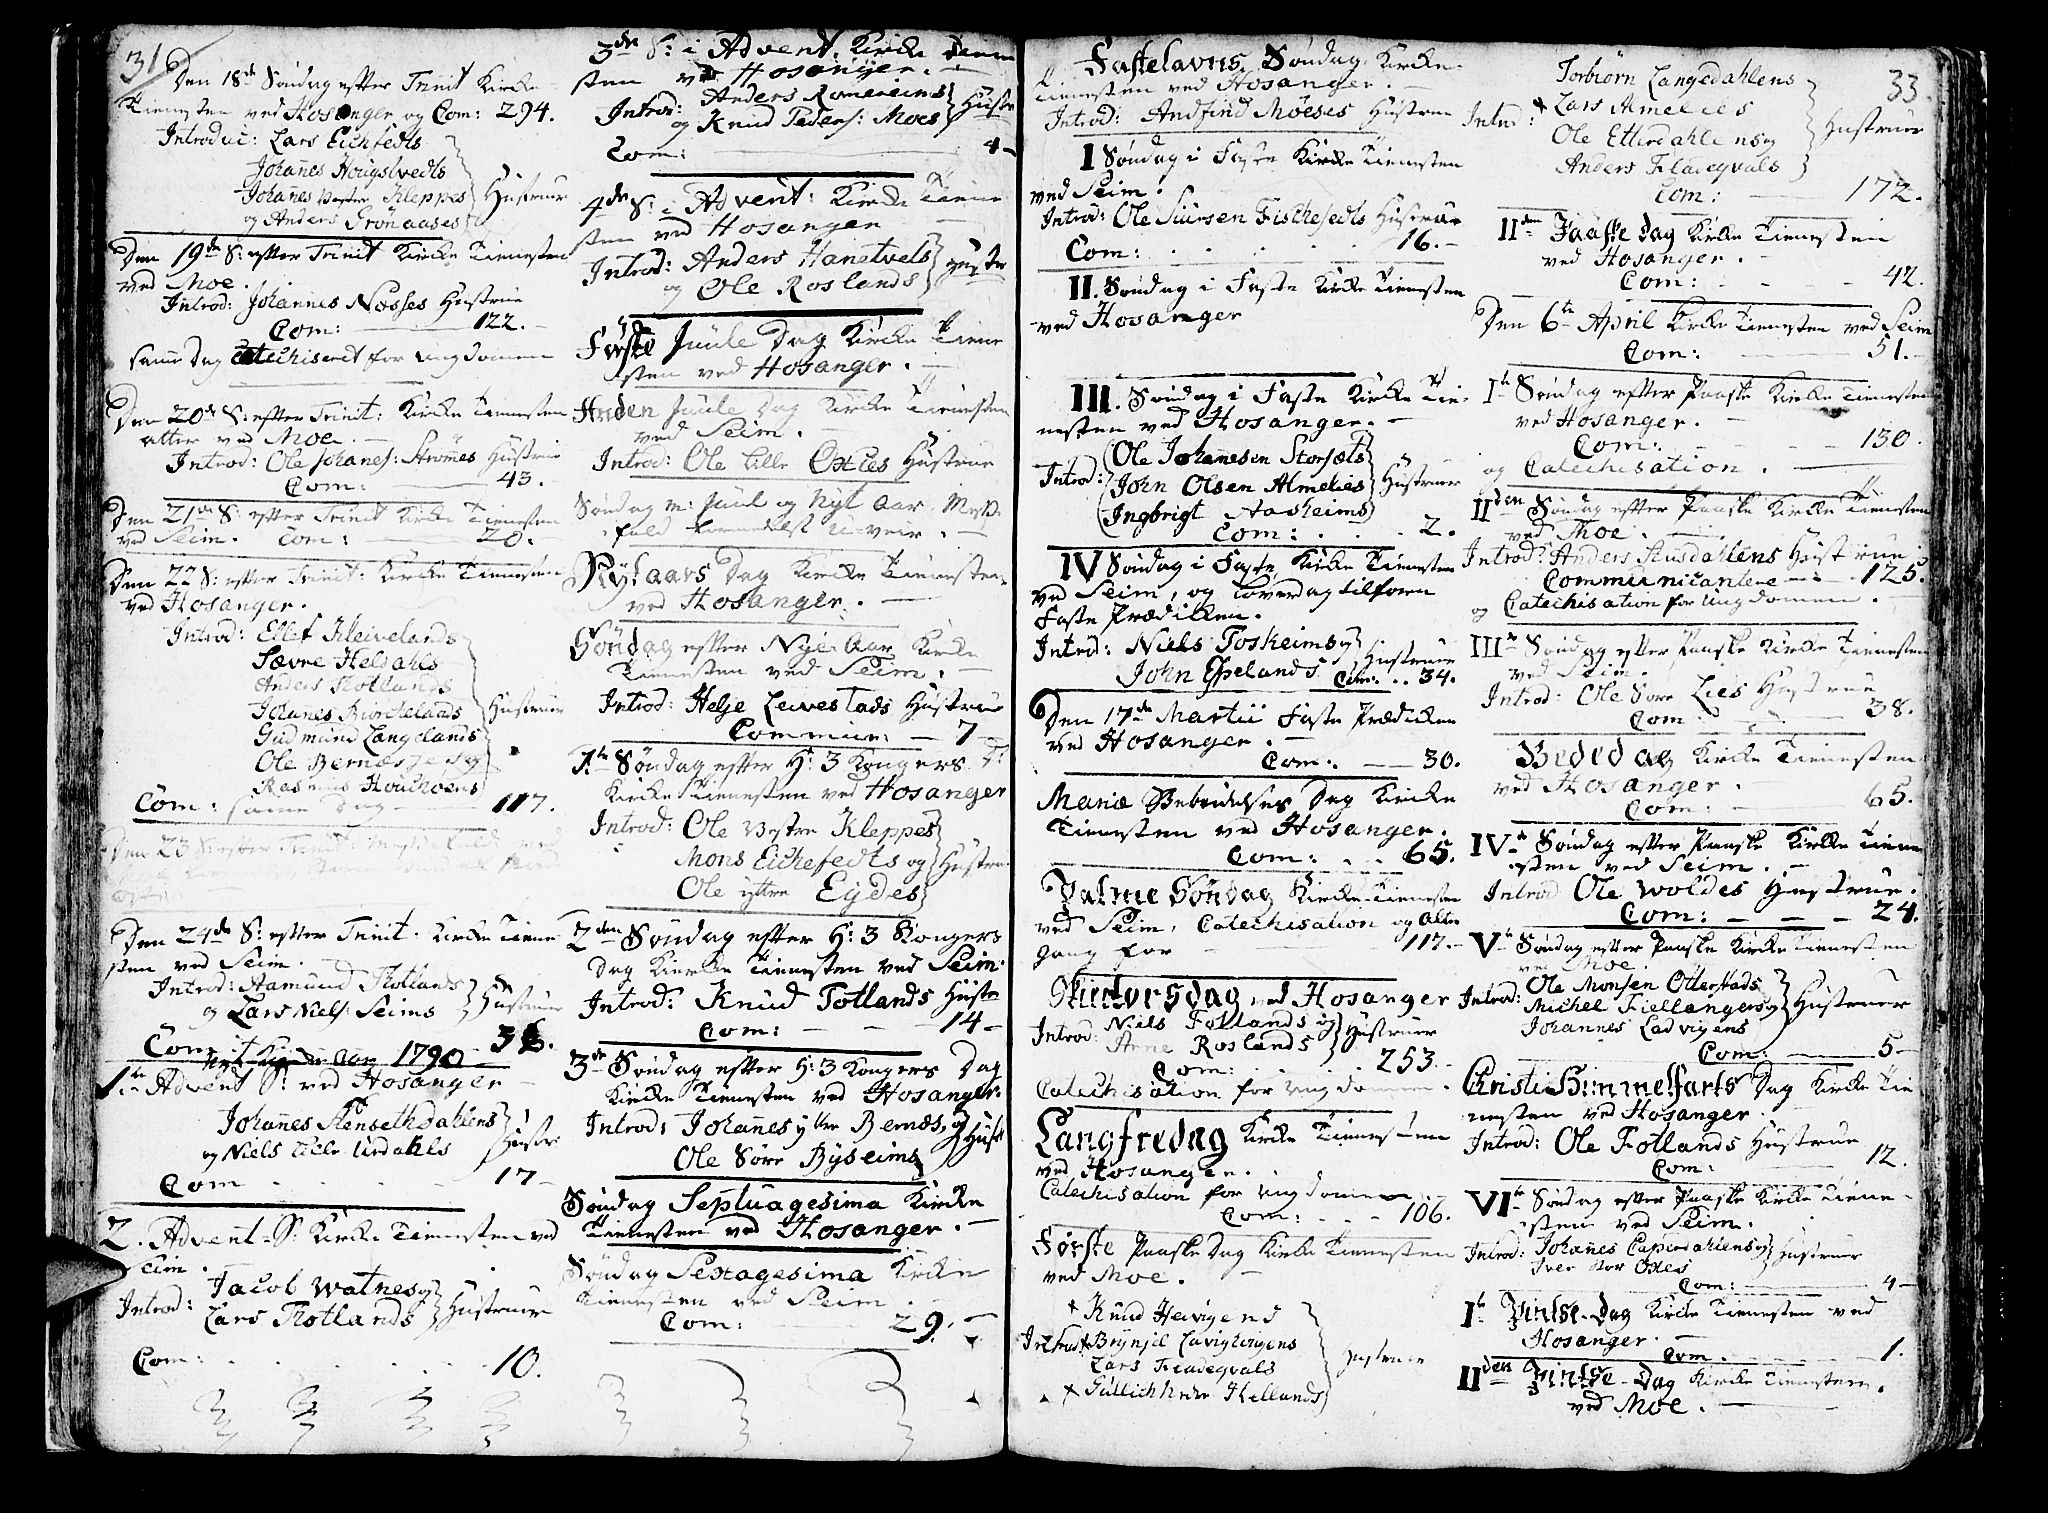 31
Den 18de Söndag efter Trinit Kirke
Tienesten ved Hosanger og Com: 294.
Introduc: Lars Eichfedts
Johañes Hougstvedts
Johañes Vestre Kleppes
og Anders Trönaases
Hustruer
Den 19de S: efter Trinit Kirke Tienesten
ved Moe.
Introd: Johannes Nosses Hustrue
Com: 122.
samme Dag Catechiseret for Ungdommen
Den 20de S: efter Trinit: Kirke Tienesten
atter ved Moe.
Introd: Ole Johanes: Strömes Hustrue
Com: 43.
Den 21de S: efter Trinit Kirke Tienesten
ved Seim. Com: 20.
Den 22 S: efter Trinit: Kirke Tienesten
ved Hosanger.
Introd: Ellef Kleivelands
Sævre Heldahls
Anders Rotlands
Johanes Burkelands
Gudmund Langelands
Ole Bernæsses og
Rasmus Houkoens
Hustruer
Com: samme Dag 117.
Den 23 S: efter Trinit Messefald ved
Den 24de S: efter Trinit. Kirke Tiene
sten ved Seim.
Introd: Aamund Rotlands
og Lars Niels: Seims
Hustruer
Com 36.
Nyt Kirke Aar 1790
1te Advent S: ved Hosanger
Johañes Stensethdahlens
og Niels Lille Urdahls
Hustr
Com 17
2. Advent S: Kirke Tienesten ved
Seim.
Introd: Jacob Watnes og
Lars Rotlands
Hustruer
Com: 10.
3de S: i Advent. Kirke Tiene
sten ved Hosanger.
Introd: Anders Romereims
og Knud Peders: Moes
Hustr
Com: 4
4de S: i Advent: Kirke Tiene
sten ved Hosanger
Introd: Anders Hanetvets
og Ole Roslands
Hustr
Förste Juule Dag Kirke Tiene
sten ved Hosanger.
Anden Juule Dag Kirke Tienesten
ved Seim.
Introd: Ole Lille Oxies Hustrue
Söndag m: Juul og Nyt Aar Mess
fald formedelst U-veir.
Nyt aars Dag Kirke Tienesten
ved Hosanger.
Söndag efter Nye-Aar Kirke
Tienesten ved Seim.
Introd: Helje Leivestads Hustrue
Commun: 7
1te Söndag efter H: 3 Kongers D:
Kirke Tienesten ved Hosanger
Introd: Ole Vestre Kleppes
Mons Eichefedts og
Ole ytre Eydes
Hustru
2den Söndag efter H: 3 Kongers
Dag Kirke Tienesten ved Seim.
Introd: Knud Totlands Hustr
Com: 14
3de Söndag efter H: 3 Kongers Dag
Kirke Tienesten ved Hosanger.
Introd: Johañes ytre Bernæs og
Ole Söre Byseims
Hust
Söndag Septuagesima Kirke
Tienesten ved Hosanger.
Söndag Sexagesima Kirke
Tienesten ved Seim.
Com: 29.
Fastelavns Söndag Kirke
Tienesten ved Hosanger.
Introd: Andfind Möeses Hustrue
I Söndag i Faste Kirke Tienesten
ved Seim.
Introd: Ole Siursen Fischesedts Hustrue
Com: 16.
II. Söndag i Faste Kirke Tienesten
ved Hosanger
III. Söndag i Faste Kirke Tie
nesten ved Hosanger.
Introd: Ole Johannesen Storsæts
John Olsen Almelies
Ingbrigt Aasheims
Hustruer
Com: 2.
IV Söndag i Faste Kirke Tienesten
ved Seim, og Löverdag tilforn
Faste Prædiken.
Introd: Niels Tosheims og
John Espelands
Hustruer
Com: 34.
Den 17de Martii Faste Prædiken
ved Hosanger.
Com: 30.
Mariæ Bebudelses Dag Kirke
Tienesten ved Hosanger.
Com: 65.
Palme Söndag Kirke-Tienesten
ved Seim, Catechisation og Alter
gang for 117.
Skiertorsdag ved Hosanger
Introd: Niels Fotlands og
Arne Roslands
Hustruer
Com: 253.
Catechisation for Ungdommen.
Langfredag Kirke Tienesten
ved Hosanger.
Catechisation for Ungdommen
Com: 106.
Förste Paaske Dag Kirke Tienesten
ved Moe.
Introd: Knud Hevigens
Brynjel Lavighogens
Lars Fladeqvals
Gullich Nedre Hellands
Hustruer
33
Introd: Torbiörn Langedahlens
Lars Almelies
Ole Etterdahlens og
Anders Fladeqvals
Hustruer
Com: 172.
IIden Paaske Dag Kirke Tienesten
ved Hosanger.
Com: 42.
Den 6te April Kirke Tienesten ved Seim
Com: 51.
Ite Söndag efter Paaske Kirke Tienesten
ved Hosanger.
Com: 130.
og Catechisation.
IIden Söndag efter Paaske Kirke Tienesten
ved Moe.
Introd: Anders Stusdahlens Hustrue
Communicantere 125.
og Catechisation for Ungdommen.
IIIde Söndag efter Paaske Kirke Tienesten
ved Seim.
Introd: Ole Söre Lies Hustrue
Com: 38.
Bededag Kirke Tienesten
ved Hosanger.
Com: 65.
IVde Söndag efter Paaske Kirke Tiene
sten ved Seim.
Introd Ole Woldes Hustrue.
Com: 24.
Vte Söndag efter Paaske Kirke Tienesten
ved Moe.
Introd: Ole Monsen Otterstads
Michel Fiellangers og
Johannes Ladvigens
Hustruer
Com: 5
Christi Himmelfarts Dag Kirke Tie
nesten ved Hosanger
Introd: Ole Fotlands Hustrue
Com: 12.
VIte Söndag efter Paaske Kirke Tiene
sten ved Seim.
Introd: Johañes Eupedahlens og
Iver Stor Oxies
Hustruer
Com: 4
Ite Pintse-Dag Kirke Tienesten ved
Hosanger.
Com. 1.
IIden Pintse-Dag Kirke Tienesten.
ved Moe.